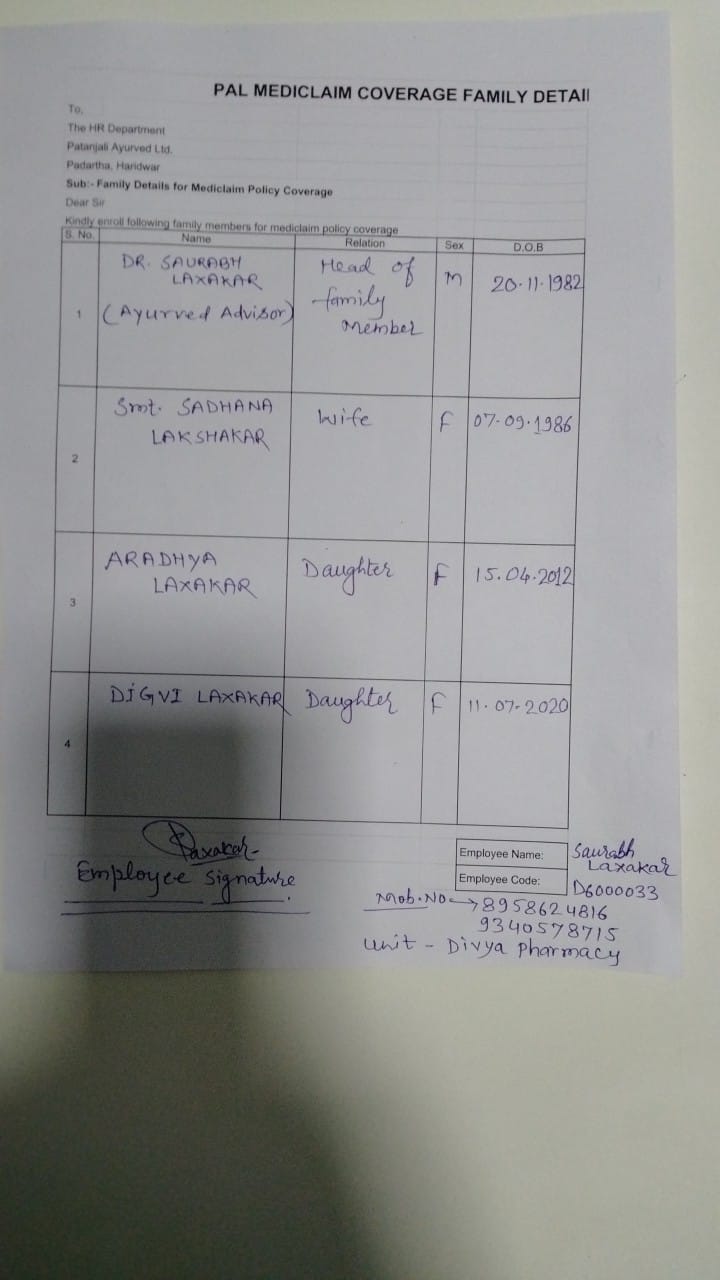 PAL MEDICLAIM COVERAGE FAMILY DETAIl
To,
The HR Department
Patanjali Ayurved Ltd.
Padartha, Haridwar
Sub:- Family Details for Mediclaim Policy Coverage
Dear Sir
Kindly enroll following family members for mediclaim policy coverage
S. No. Name Relation Sex D.O.B
1 DR. SAURABH LAXAKAR (Ayurved Advisor) Head of family Member M 20.11.1982
2 Smt. SADHANA LAKSHAKAR Wife F 07.09.1986
3 ARADHYA LAXAKAR Daughter F 15.04.2012
4 DIGVI LAXAKAR Daughter F 11.07.2020
Laxakar
Employee Signature
Employee Name: Saurabh Laxakar
Employee Code: D6000033
Mob.No → 8958624816
9340578715
Unit - Divya Pharmacy